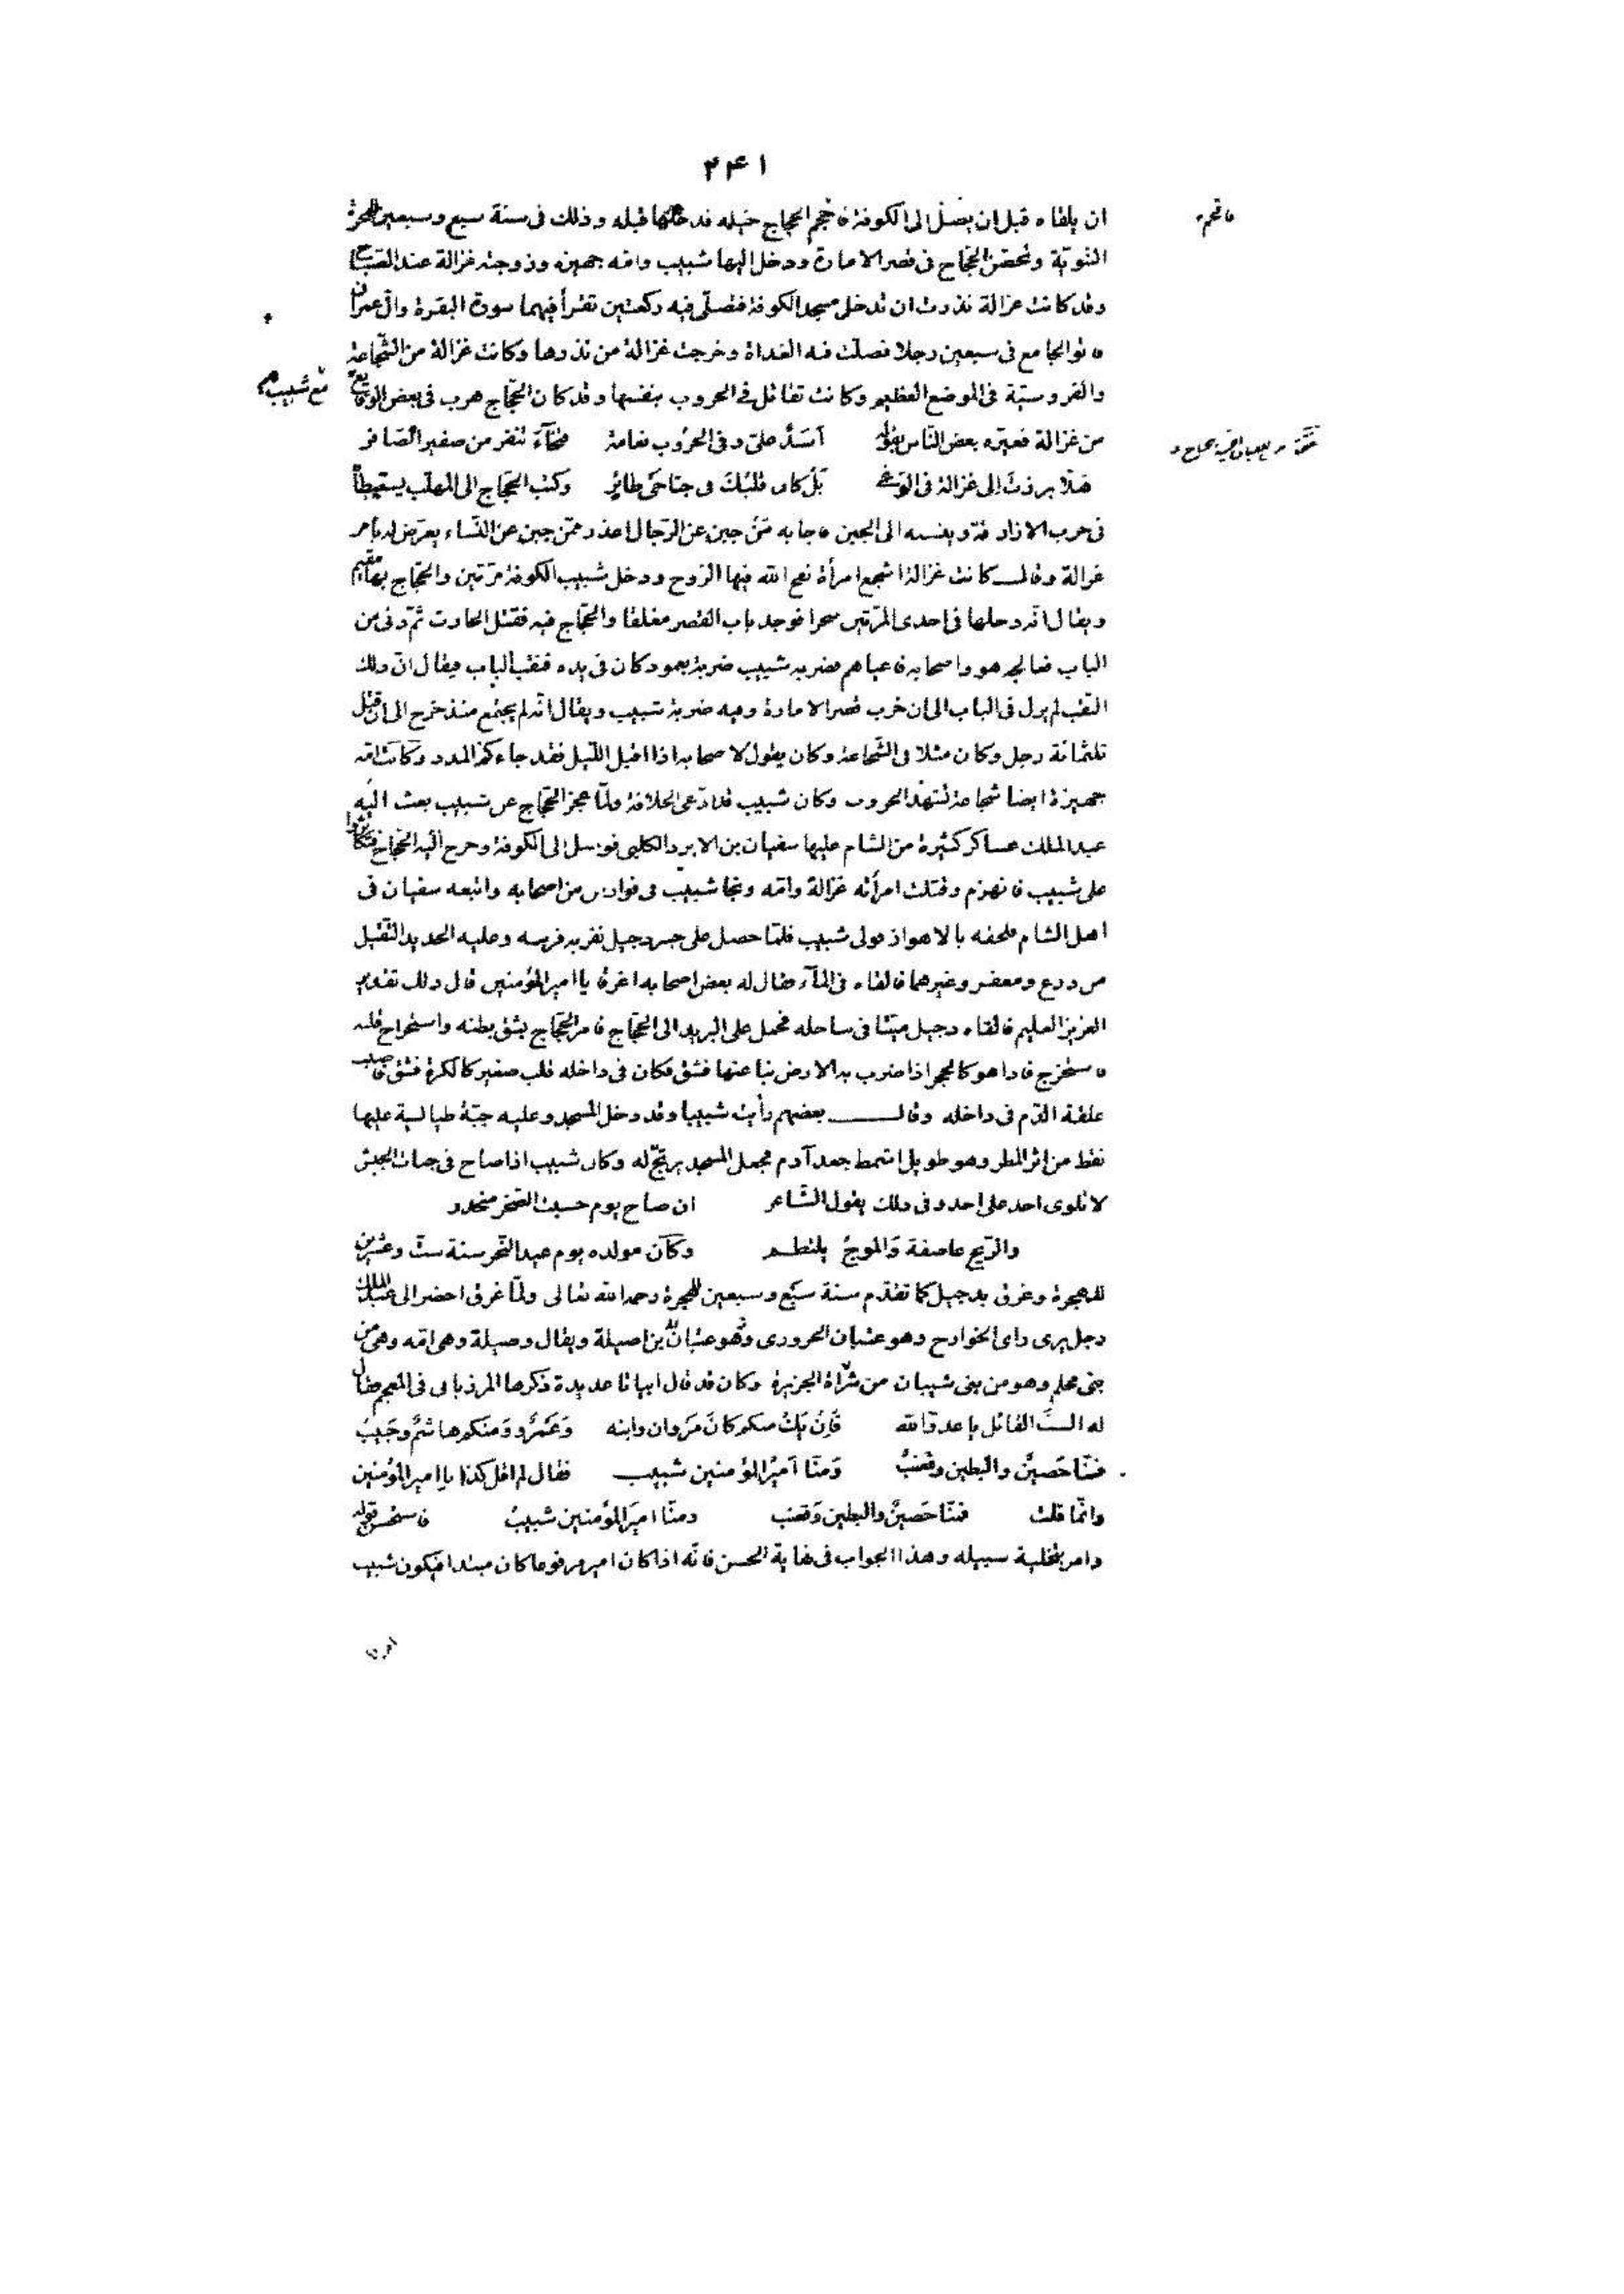 ٢٤١
ان يلقاه قبل ان يصل الى الكوفة فاقحم الحجاج خيله فدخلها قبله وذلك فى سنة سبع وسبعين للهجرة
النبوية وتحصن الحجاج فى قصر الامارة ودخل اليها شبيب وامه جهيزة وزوجته غزالة عند الصباح
وقد كانت غزالة نذرت ان تدخل مسجد الكوفة فتصلى فيه ركعتين تقرأ فيهما سورة البقرة وآل عمران
فاتوا الجامع فى سبعين رجلا فصلت فيه الغداة وخرجت غزالة من نذرها وكانت غزالة من الشجاعة
والفروسية فى الموضع العظيم وكانت تقاتل فى الحروب بنفسها وقد كان الحجاج هرب فى بعض الوقايع مع شبيب
من غزالة فعيره بعض الناس بقوله اَسَدٌ علىّ وفى الحُرُوب نعامة فتخآءَ تنفر من صفير الصافر
هلّا برزتَ الى غزالة فى الوغى بَلْ كان قلبُكَ فى جناحَىْ طائرٍ وكتب الحجاج الى المهلب يستبطأ
فى حرب الازارقة وينسبه الى الجبن فاجابه مَنْ جبن عن الرجال اعذر ممن جبن عن النساء يعرض له بامر
غزالة وقال كانت غزالة اشجع امرأة نفخ الله فيها الروح ودخل شبيب الكوفة مرتين والحجاج بها مقيم
ويقال انه دخلها فى احدى المرتين سحرا فوجد باب القصر مغلقا والحجاج فيه فقتل الحارث ثم دنى من
الباب فعالجه هو واصحابه فاعياهم فضربه شبيب ضربة بعمود كان فى يده فنقب الباب فيقال ان ذلك
النقب لم يزل فى الباب الى ان خرب قصر الامارة وفيه ضربة شبيب ويقال انه لم يجتمع منذ خرج الى ان قتل
ثلثمائة رجل وكان مثلا فى الشجاعة وكان يقول لاصحابه اذا اقبل الليل فقد جاءكم المدد وكانت امه
جهيزة ايضا شجاعة تشهد الحروب وكان شبيب قد ادعى الخلافة ولما عجز الحجاج عن شبيب بعث اليه
عبد الملك عساكر كثيرة من الشام عليها سفيان بن الابرد الكلبى فوصل الى الكوفة وخرج اليه الحجاج فتكاثروا
على شبيب فانهزم وقتلت امرأته غزالة وامه ونجا شبيب فى فوارس من اصحابه واتبعه سفيان فى
اهل الشام فلحقه بالاهواز فولى شبيب فلما حصل على جسر دجيل نفر به فرسه وعليه الحديد الثقيل
من درع ومغفر وغيرهما فالقاه فى المآء فقال له بعض اصحابه اغرقا يا امير المؤمنين قال ذلك تقدير
العزيز العليم فالقاه دجيل ميتا فى ساحله فحمل على البريد الى الحجاج فامر الحجاج بشق بطنه واستخراج قلبه
فاستخرج فاذا هو كالحجر اذا ضرب به الارض نبا عنها فشق فكان فى داخله قلب صغير كالكرة فشق فاصيب
علقة الدم فى داخله وقال بعضهم رأيت شبيبا وقد دخل المسجد وعليه جبة طيالسة عليها
نقط من اثر المطر وهو طويل اشمط جعد آدم فجعل المسجد يرتج له وكان شبيب اذا صاح فى جنبات الجيش
لا يلوى احد على احد وفى ذلك يقول الشاعر ان صاح يوم حسبت الصخر منحدر
والريح عاصفة وَالموجُ يلتطم وكان مولده يوم عيد النحر سنة ست وعشرين
للهجرة وغرق بدجيل كما تقدم سنة سبع وسبعين للهجرة رحمه الله تعالى ولما غرق احضر الى عبد الملك
رجل يرى راى الخوارج وهو عتبان الحرورى وهو عتبان بن اصيلة ويقال وصيلة وهى امه وهى من
بنى محلم وهو من بنى شيبان من شراة الجزيرة وكان قد قال ابياتا عديدة ذكرها المرزبانى فى المعجم فقال
له الست القائل يا عدو الله فَاِنْ يَكُ منكم كانَ مَروان وابنه وَعَمْرُو وَمنكم هاشمٌ وحَبيبُ
فمنّا حَصينٌ والبطين وقعنبٌ وَمنّا اَميرُ المؤمنين شبيب فقال لم اقل كذا يا امير المؤمنين
وانما قلت فمنّا حَصينٌ والبطين وَقعنب ومنّا اميرَ المؤمنين شبيبُ فاستحسن قوله
وامر بتخلية سبيله وهذا الجواب فى غاية الحسن فانه اذا كان امير مرفوعا كان مبتدا فيكون شبيب